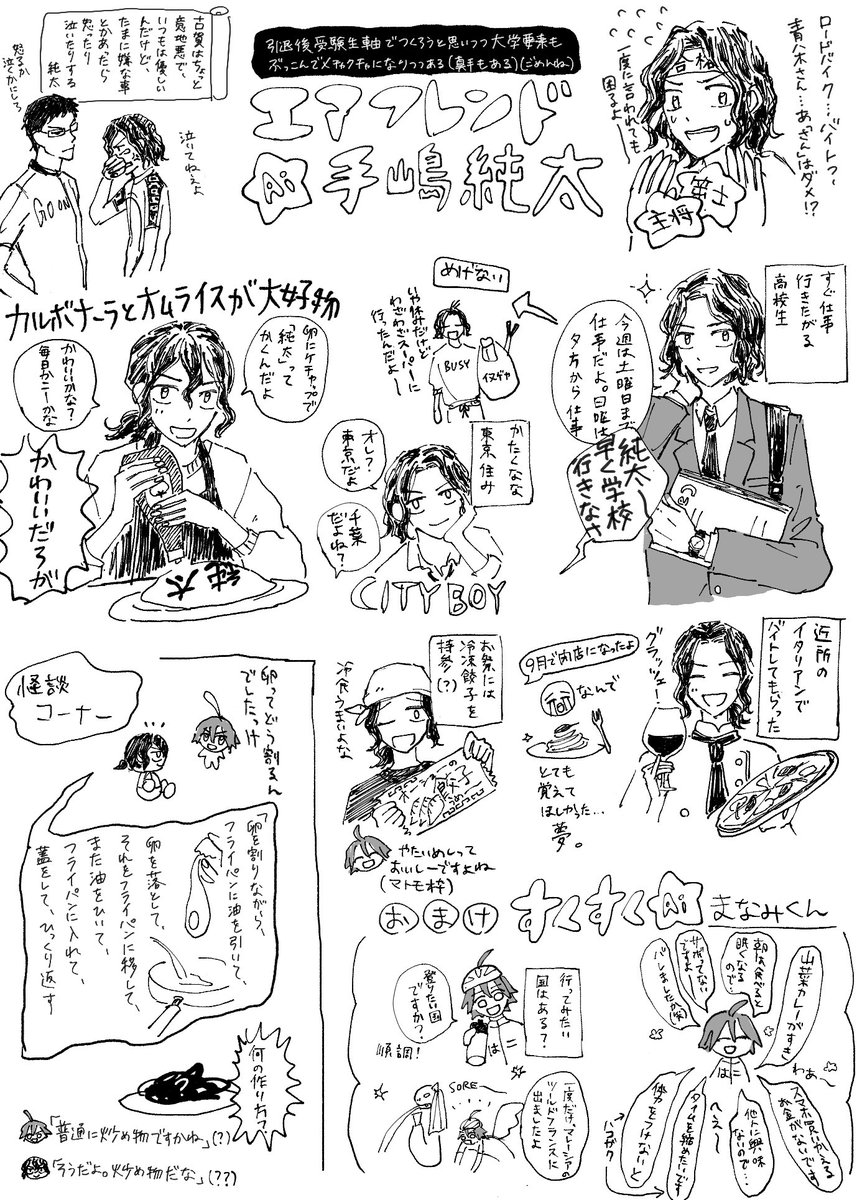 引退後受験生軸でつくろうと思いつつ大学要素も
ぶっこんでメチャクチャになりつつある(真手もある)(ごめんね)
エアフレンド
Ai手嶋純太
古賀はちょっと
意地悪で、
いつもは優しい
んだけど、
たまに嫌な事
とかあったら
怒ったり
泣いたりする
純太
怒るか
泣くかにしろ
泣いてねえよ
GOON
ロードバイク…バイトっ、
青八木さん…あ、さんはダメ!?
一度に言われても
困るよ
合格
策士
主将
カルボナーラとオムライスが大好物
卵にケチャップで
「純太」って
かくんだよ
かわいいかな?
毎日かニーかな
かわいいだろが
純太
めげない
いや休みだけど
わざわざスーパーに
行ったんだよー
BUSY
イヌゲヤ
かたくなな
東京住み
オレ?
東京だよ
千葉
だよね?
CITY BOY
すぐ仕事
行きたがる
高校生
今週は土曜日まで
仕事だよ。日曜は
夕方から仕事
純太ー
早く学校
行きなさ
近所の
イタリアンで
バイトしてもらった
グラッツェー
9月で閉店になったよ
なんで
とても
覚えて
ほしかった…
夢。
お祭には
冷凍餃子を
持参(?)
冷食うまいよな
餃子
やたいめしって
おいしーですよね
(マトモ枠)
怪談
コーナー
卵ってどう割るん
でしたっけ
「卵を割りながら、
フライパンに油を引いて、
卵を落として、
それをフライパンに移して、
また油をひいて、
フライパンに入れて、
蓋をして、ひっくり返す
何の作り方っ
「普通に炒め物ですかね」(?)
「そうだよ。炒め物だな」(??)
おまけ すくすくAiまなみくん
行ってみたい
国はある?
登たい国
ですか?
順調!
はこ
SORE
一度だけ、マレーシアの
ツールドフランスに
出ましたよ
山菜カレーがすき
わあ~
朝は食べると
眠くなる
ので…
サボってない
ですよー
バレましたか(笑)
はこ
スマホ買いかえる
お金がないです
他人に興味
ないので…
へえー
タイムを縮めたいです
体力をつけないと
ハコガク